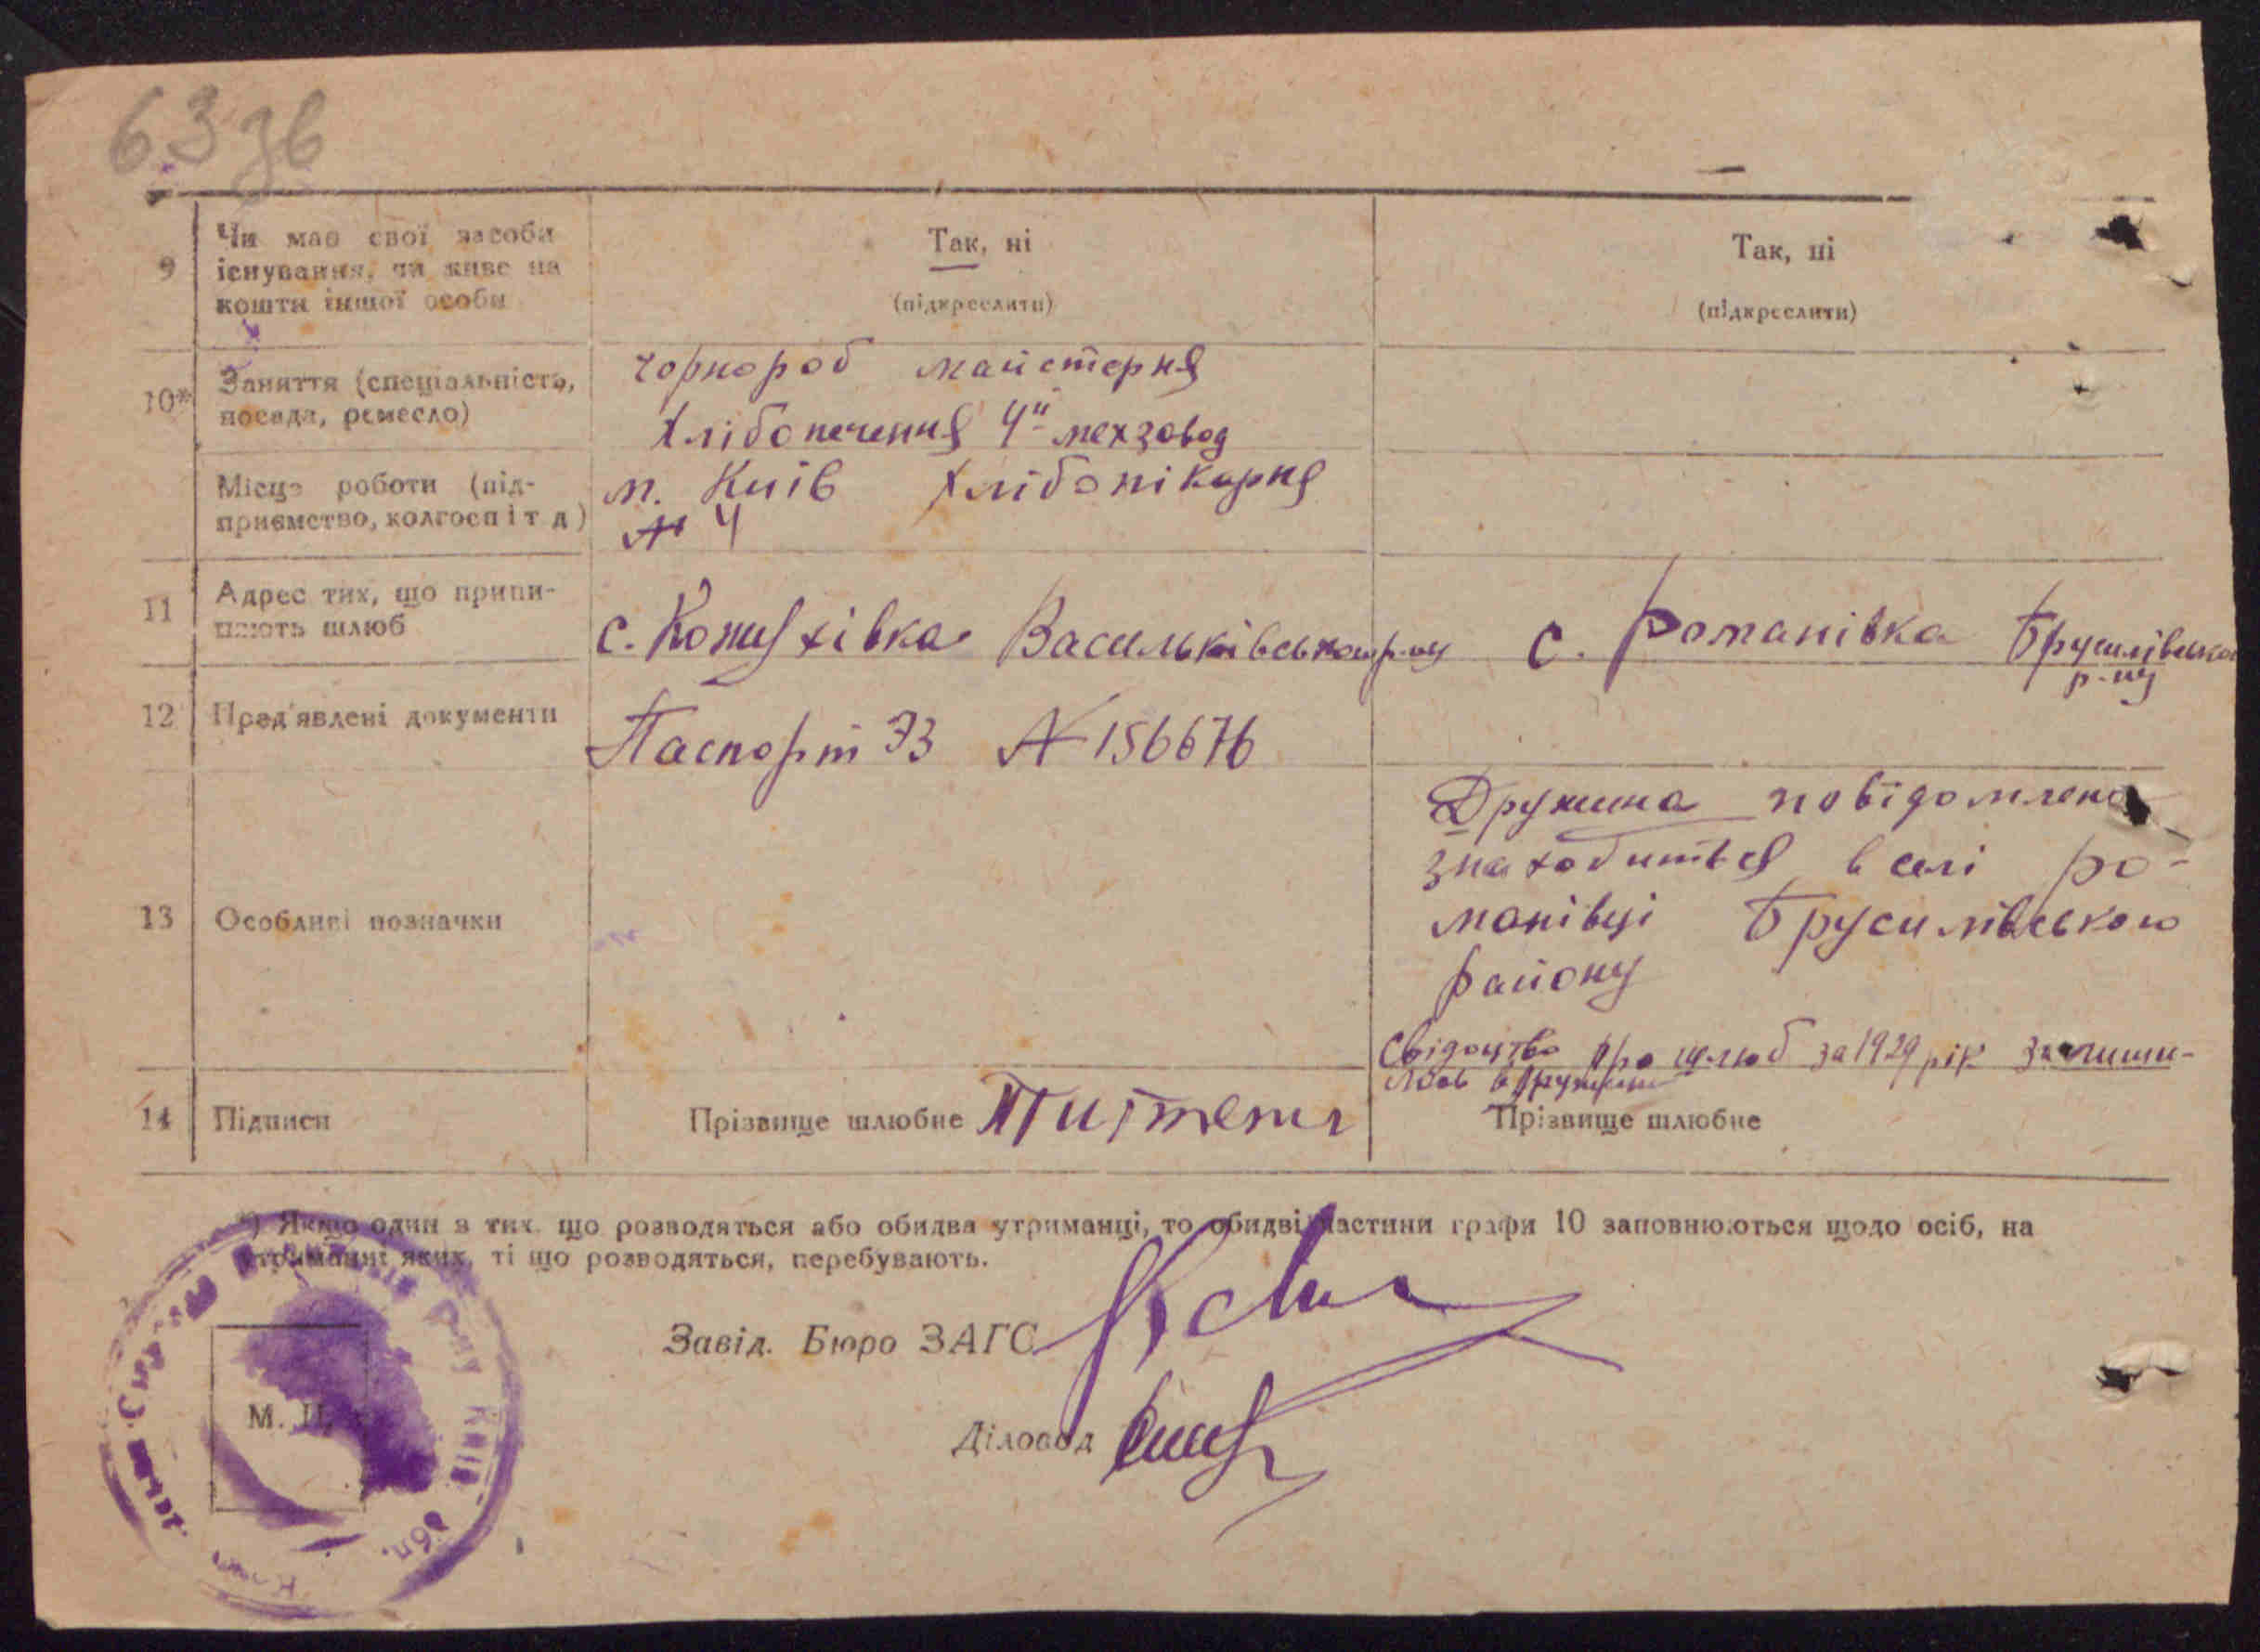 63 зв
9
Чи має свої засоби
існування, чи живе на
кошти іншої особи
Так, ні
(підкреслити)
Так, ні
(підкреслити)
10*
Заняття (спеціальність,
посада, ремесло)
чорнороб майстерня
хлібопечення 4й мехзавод
Місце роботи (під-
приємство, колгосп і т д)
м. Київ хлібопікарня
№ 4
11
Адрес тих, що припи-
няють шлюб
с. Кожухівка Васильківського р-ну
с. Романівка Брусилівська
р-ну
12
Пред'явлені документи
Паспорт ЭЗ № 156676
13
Особливі позначки
Дружина повідомлена
знаходиться в селі Ро-
манівці Брусилівського
району
Свідоцтво про шлюб за 1929 рік залиши-
лось в дружини
14
Підписи
Прізвище шлюбне
Прізвище шлюбне
*) Якщо один з тих що розводяться або обидва утриманці, то обидві частини графи 10 заповнюються щодо осіб, на
утриманні яких, ті що розводяться, перебувають.
Завід. Бюро ЗАГС
Діловод
М. П.
Р-ну Київ. обл.